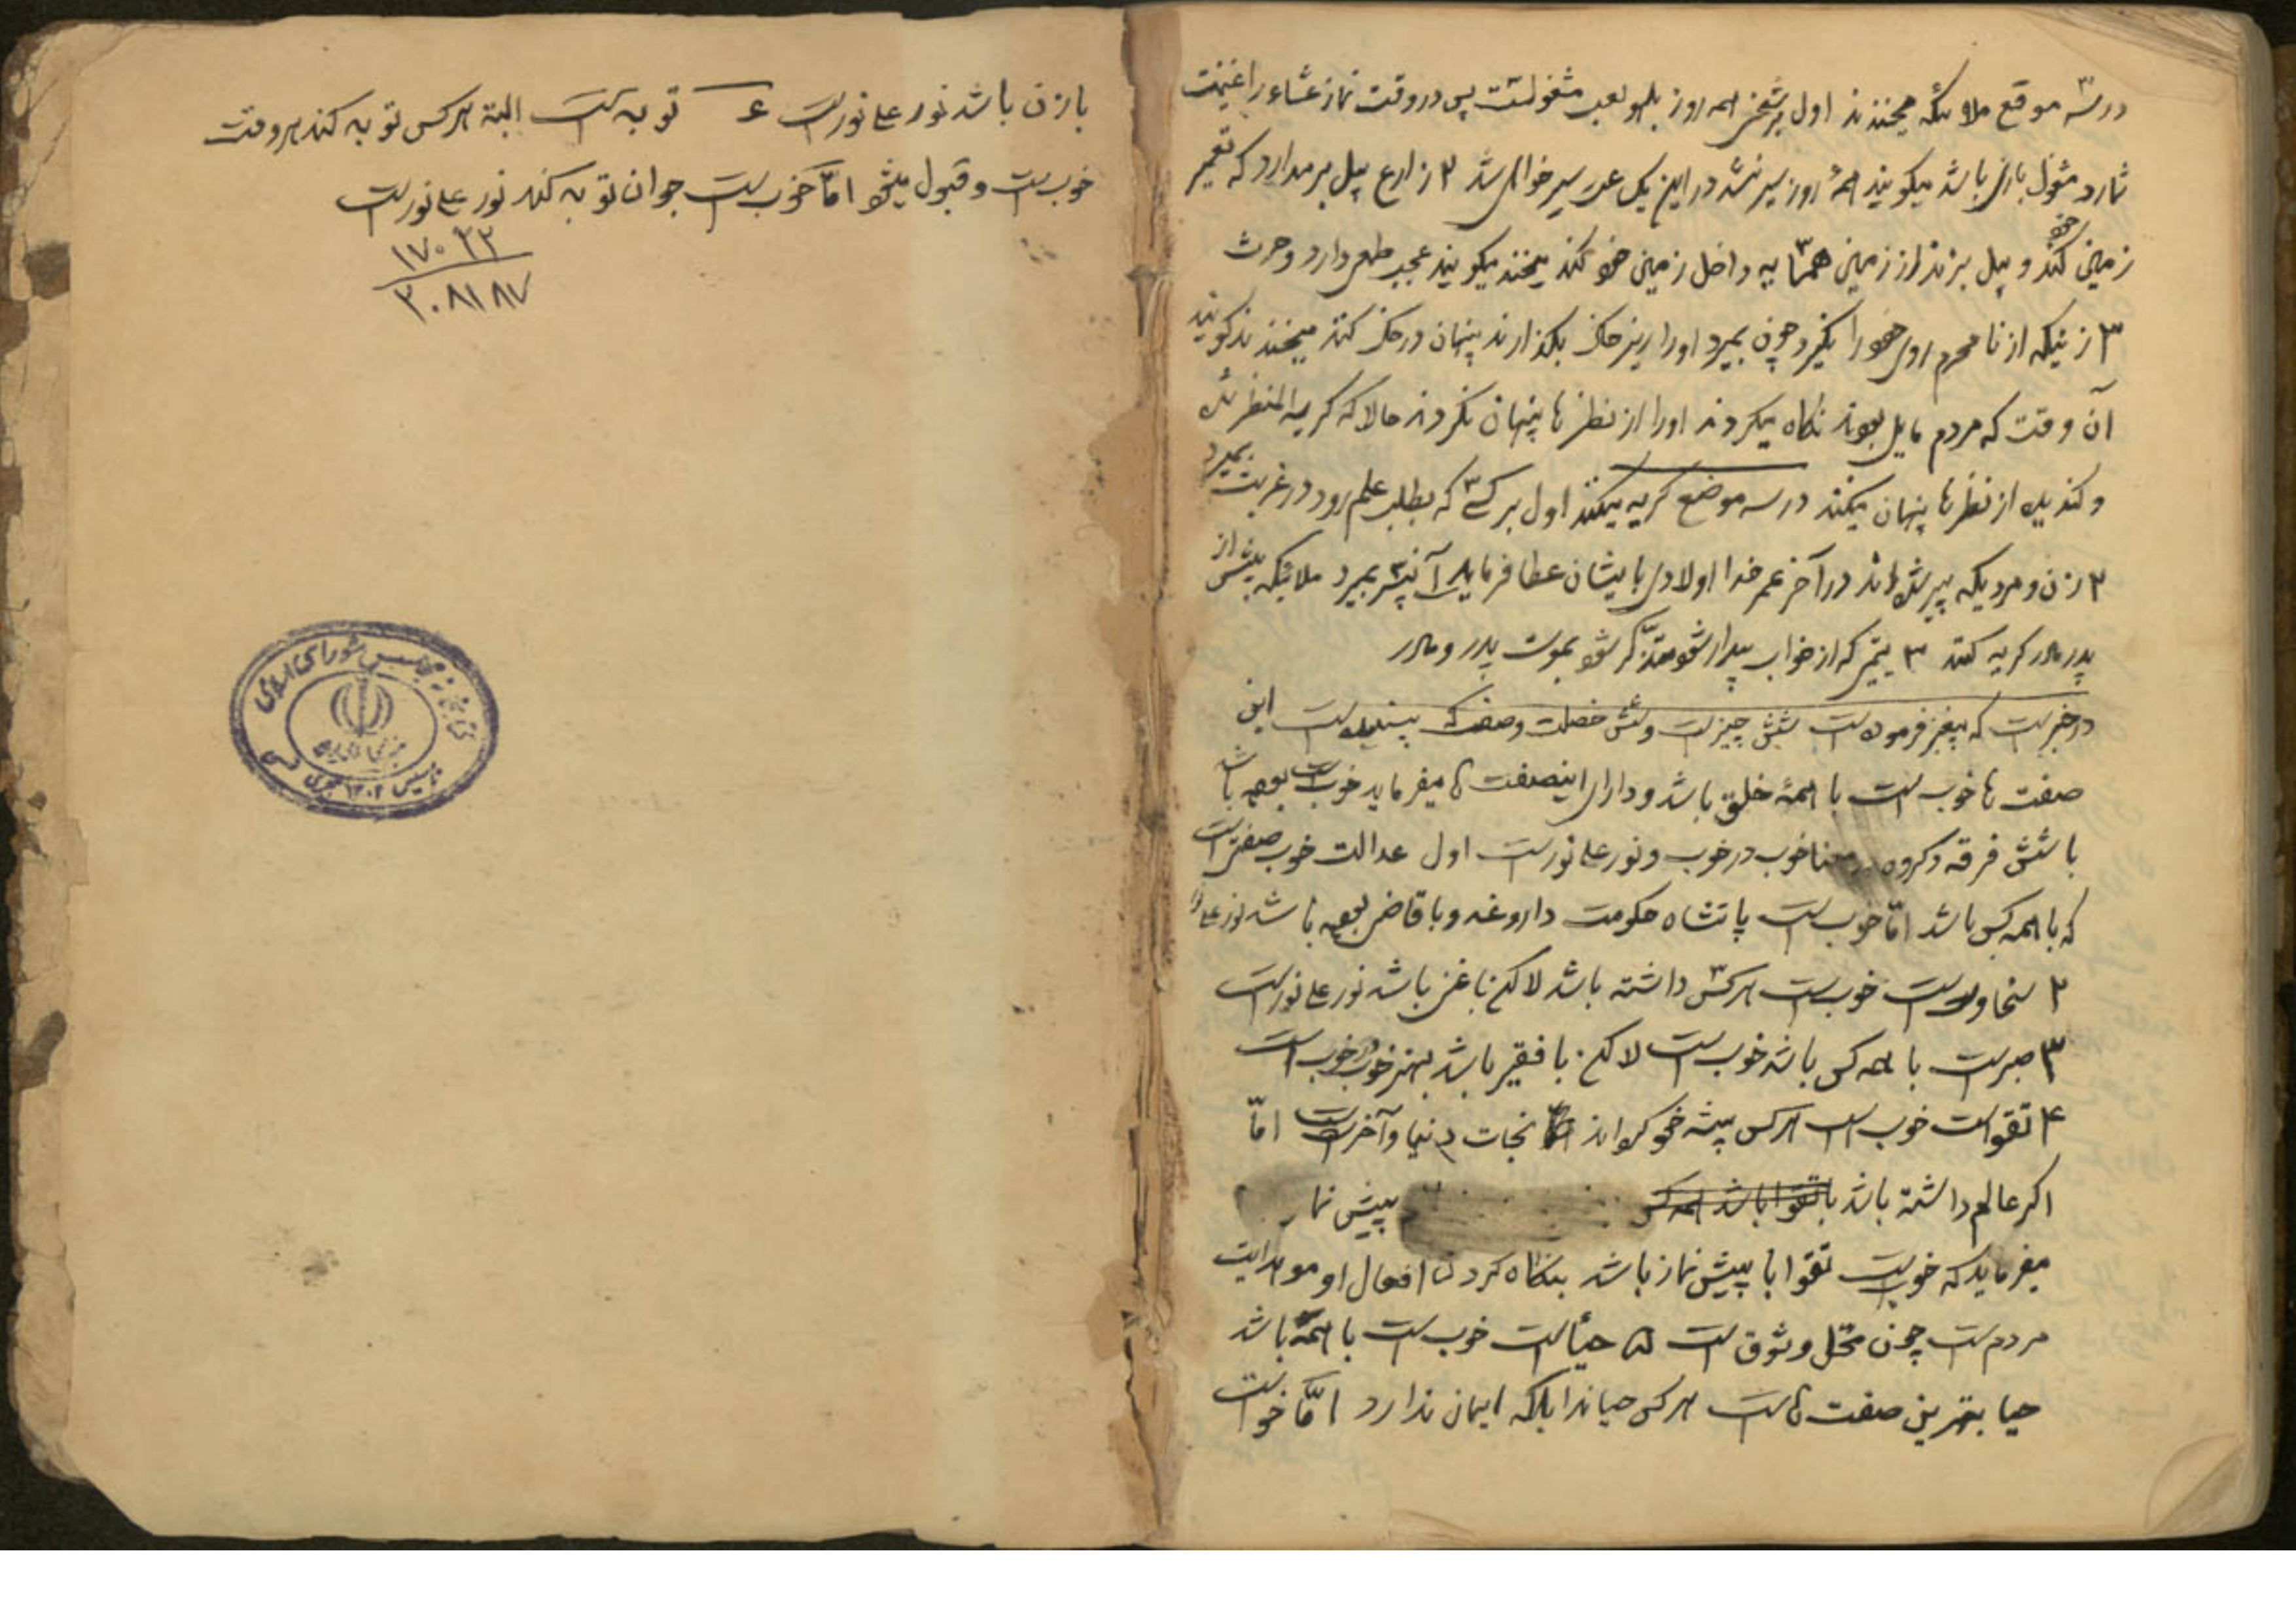 در سه موقع ملائکه میخندند اول بر شخصی همه روز بلهو لعب مشغولست پس در وقت نماز عشاء را غنیمت
شمارد مشغول بازی باشد میگویند همهٔ روز سیر نشد در این یک سیر خواهی شد ۲ زارع بیل برمدارد که تعمیر
زمین خود کند و بیل بزند از زمین همسایه داخل زمین خود کند میخندند میگویند عجب طمعی دارد و حرث
۳ زنیکه از نامحرم روی خود را نگیرد چون بمیرد او را زیر خاک بگذارند پنهان در خاک کنند میخندند گویند
آن وقت که مردم مایل بودند نگاه میکردند او را از نظرها پنهان نکردند حالا که کریه المنظر شده
و گندیده از نظرها پنهان میکنند در سه موضع گریه میکنند اول بر کسی که بطلب علم رود در غربت بمیرد
۲ زن و مردیکه پیر شده‌اند در آخر عمر خدا اولادی بایشان عطا فرماید آنهم بمیرد ملائیکه بیش از
پدر مادر گریه کنند ۳ یتیمی که از خواب بیدار شود متذکر شود بموت پدر و مادر
در خبر است که پیغمبر فرموده است شش چیز است و شش خصلت و صفت که پسندیده است این
صفت ها خوب است با همهٔ خلق باشد و دارای اینصفت ها میفرماید خوب است بوده باشد
با شش فرقه و گروه خوب در خوب و نور علی نور است اول عدالت خوب صفتی است
که با همه کس باشد امّا خوب است پادشاه حکومت داروغه و با قاضی بوده باشد نور علی نور
۲ سخاوت است خوب است هر کس داشته باشد لاکن با غنی باشد نور علی نور است
۳ صبر است با همه کس باشد خوب است لاکن با فقیر باشد بهتر خوب در خوب است
۴ تقوا است خوب است هر کس پیشه خود نجات دنیا و آخرت است امّا
اگر عالم داشته باشد با تقوا باشد همه کس پیش نما
میفرماید که خوب است تقوا با پیش نماز باشد بنگاه کردن افعال او هدایت
مردم است چون محل وثوق است ۵ حیأ است خوب است با همه باشد
حیا بهترین صفت ها است هر کس حیا ندارد بلکه ایمان ندارد امّا خوب است
با زن باشد نور علی نور است ۶ توبه است البته هر کس توبه کند هر وقت
خوب است و قبول میشود امّا خوب است جوان توبه کند نور علی نور است
۱۷۰۲۲
۲۰۸۱۸۷
کتابخانه مجلس شورای اسلامی
تأسیس ۱۳۰۲ هجری